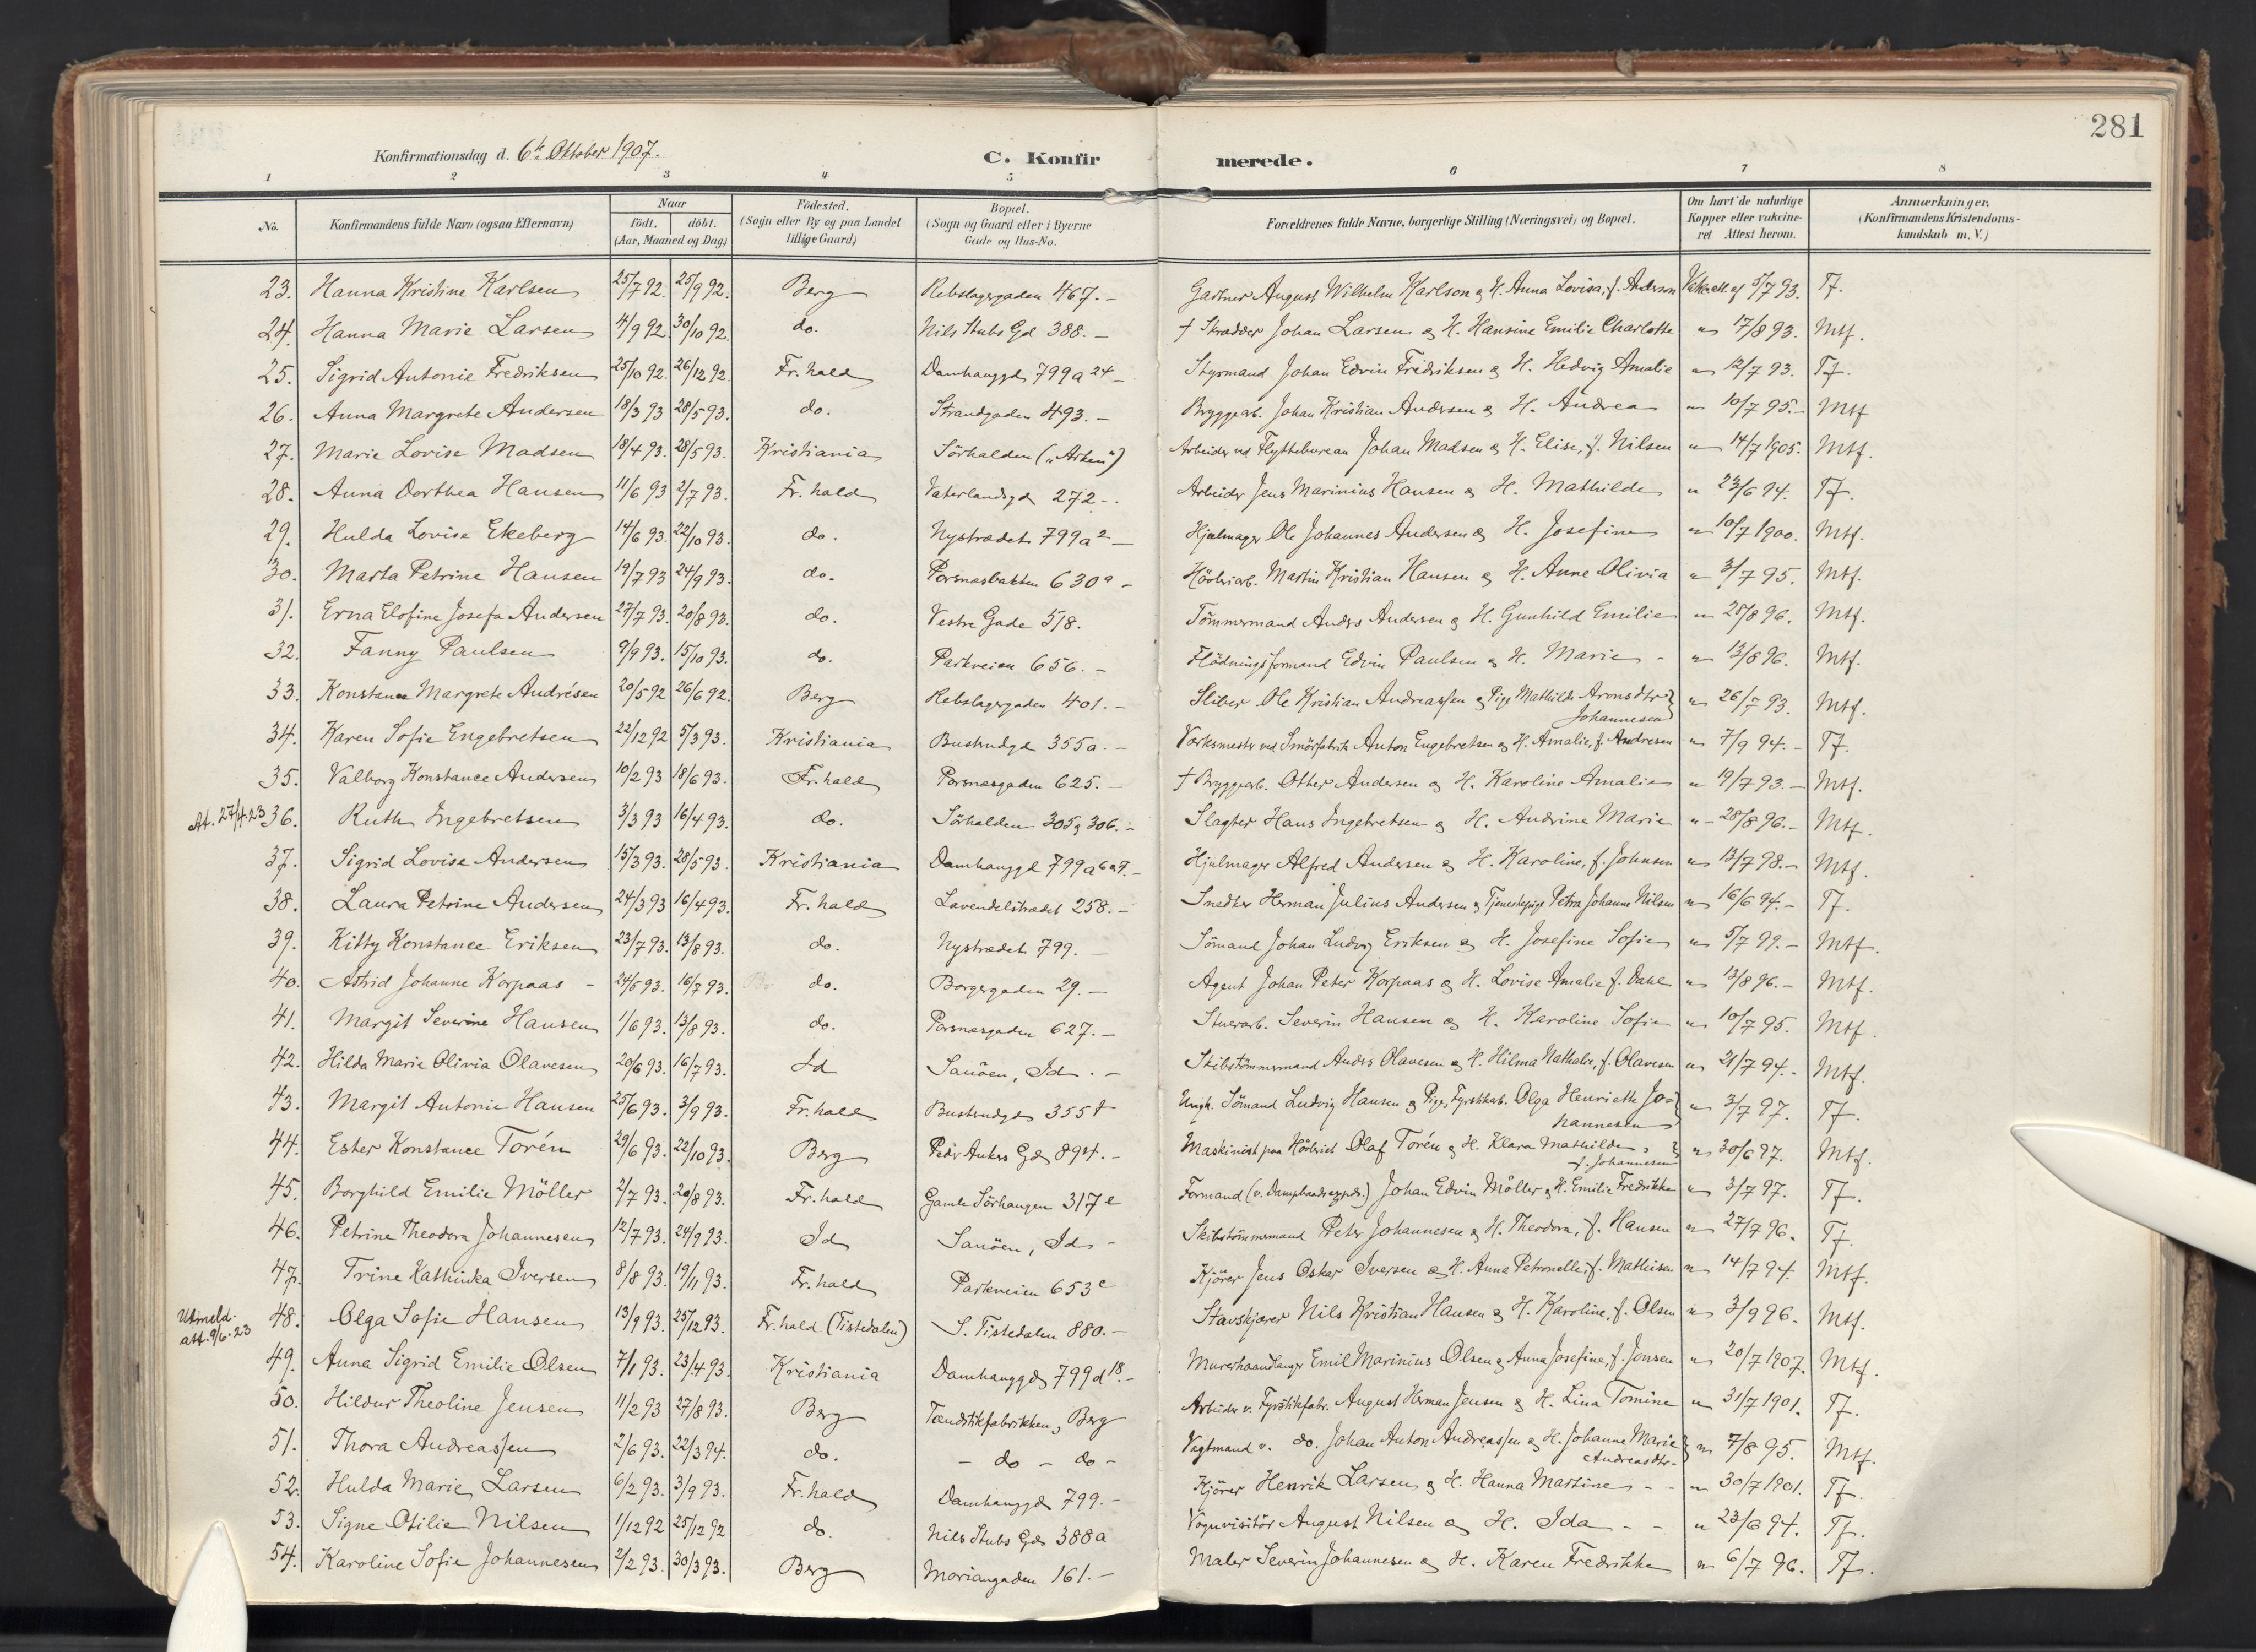 281
Konfirmationsdag d. 6te Oktober 1907. C. Konfir merede.
1 2 3 4 5 6 7 8
No. Konfirmandens fulde Navn (ogsaa Efternavn) Naar födt. döbt. (Aar, Maaned og Dag) Födested. (Sogn eller By og paa Landet tillige Gaard) Bopæl. (Sogn og Gaard eller i Byerne Gade og Hus-No. Forældrenes fulde Navne, borgerlige Stilling (Næringsvei) og Bopæl. Om havt de naturlige Kopper eller vakcineret Attest herom. Anmærkninger. (Konfirmandens Kristendomskundskab m. V.)
23. Hanna Kristine Karlsen 25/7 92. 25/9 92. Berg Rebslagergaden 467. - Gartner August Wilhelm Karlson & H. Anna Lovisa, f. Anderson Vakc. att. af 5/7 93. Tf.
24. Hanna Marie Larsen 4/9 92. 30/10 92. do. Nils Stubs Gd 388. - † Skrædder Johan Larsen & H. Hansine Emilie Charlotte " 17/8 93. Mtf.
25. Sigrid Antonie Fredriksen 25/10 92. 26/12 92. Fr. hald Damhauggd 799a 24 - Styrmand Johan Edvin Fredriksen & H. Hedvig Amalie " 12/7 93. Tf.
26. Anna Margrete Andersen 18/3 93 28/5 93. do. Strandgaden 493. - Bryggearb. Johan Kristian Andersen & H. Andrea " 10/7 95. - Mtf
27. Marie Lovise Madsen 18/4 93. 28/5 93. Kristiania Sörhalden ("Arken") Arbeider ved Flyttebureau Johan Madsen & H. Elise, f. Nilsen " 14/7 1905. Mtf.
28. Anna Dorthea Hansen 11/6 93 2/7 93. Fr. hald Vaterlandsgd 272 - Arbeider Jens Marinius Hansen & H. Mathilde " 23/6 94. Tf.
29. Hulda Lovise Ekeberg 14/6 93. 22/10 93. do. Nystrædet 799a 2 - Hjulmager Ole Johannes Andersen & H. Josefine " 10/7 1900. Mtf.
30. Marta Petrine Hansen 19/7 93 24/9 93. do. Porsnæsbakken 630a - Hövleriarb. Martin Kristian Hansen & H. Anne Olivia " 3/7 95. Mtf.
31. Erna Elofine Josefa Andersen 27/7 93. 20/8 93. do. Vestre Gade 518. Tömmermand Anders Andersen & H. Gunhild Emilie " 28/8 96. Mtf.
32. Fanny Paulsen 9/9 93. 15/10 93. do. Parkveien 656. - Flödningsformand Edvin Paulsen & H. Marie - " 13/8 96. Mtf.
33. Konstance Margrete Andrésen 20/5 92 26/6 92. Berg Rebslagergaden 401. - Sliber Ole Kristian Andreassen & Pige Mathilde Aronsdtr. Johannesen " 26/7 93. Mtf.
34. Karen Sofie Engebretsen 22/12 92 5/3 93. Kristiania Buskrudgd 355a. - Værksmester ved Smörfabrik Anton Engebretsen & H. Amalie, f. Andresen " 7/9 94. - Tf.
35. Valborg Konstance Andersen 10/2 93 18/6 93. Fr. hald Porsnæsgaden 625. - † Bryggearb. Otter Andersen & H. Karoline Amalie " 19/7 93. - Mtf.
At. 27/4. 23 36. Ruth Ingebretsen 3/3 93 16/4 93. do. Sörhalden 305 & 306. - Slagter Hans Ingebretsen & H. Andrine Marie " - 28/8 96. - Mtf.
37. Sigrid Lovise Andersen 15/3 93. 28/5 93. Kristiania Damhauggd 799a 6 a 9. - Hjulmager Alfred Andersen & H. Karoline, f. Johnsen " 13/7 98. - Mtf.
38. Laura Petrine Andersen 24/3 93 16/4 93. Fr. hald Lavendelstrædet 258. - Snedker Herman Julius Andersen & Tjenestepige Petra Johanne Nilsen " 16/6 94. - Tf.
39. Kitty Konstance Eriksen 23/7 93. 13/8 93. do. Nystrædet 799. - Sömand Johan Ludvig Eriksen & H. Josefine Sofie " 5/7 99. - Mtf.
40. Astrid Johanne Korpaas - 24/5 93. 16/7 93. do. Borgergaden 29. - Agent Johan Peter Korpaas & H. Lovise Amalie f. Dahl " 13/8 96. - Mtf.
41. Margit Severine Hansen 1/6 93. 13/8 93. do. Porsnæsgaden 627. - Stuerarb. Severin Hansen & H. Karoline Sofie " 10/7 95. Mtf.
42. Hilda Marie Olivia Olavesen 20/6 93. 16/7 93. Id Sauöen, Id. - Skibstömmermand Anders Olavesen & H. Hilma Nathalie, f. Olavesen " 21/7 94. - Mtf.
43. Margit Antonie Hansen 25/6 93. 3/9 93. Fr. hald Buskrudgd 355 f Ungk. Sömand Ludvig Hansen & Pige, Fyrstikarb. Olga Henriette Johannesen " 3/7 97. Tf.
44. Ester Konstance Torén 29/6 93. 22/10 93. Berg Peder Ankers Gd 894. - Maskinist paa Hövleriet Olaf Torén & H. Klara Mathilde, f. Johannesen " 30/6 97. Mtf.
45. Borghild Emilie Möller 2/7 93. 20/8 93. Fr. hald Gamle Sörhaugen 317 e Formand Johan Edvin Möller & H. Emilie Fredrikke " 3/7 97. Tf.
46. Petrine Theodora Johannesen 12/7 93. 24/9 93. Id Sauöen, Id - Skibstömmermand Peter Johannesen & H. Theodora, f. Hansen " 27/7 96. Tf.
47. Trine Kathinka Iversen 8/8 93. 19/11 93. Fr. hald Parkveien 653 c Kjörer Jens Oskar Iversen & H. Anna Petronelle, f. Mathisen " 14/7 94. Mtf.
Utmeld. att. 9/6. 23 48. Olga Sofie Hansen 13/9 93. 25/12 93. Fr. hald (Tistedalen) S. Tistedalen 880. - Stavskjærer Nils Kristian Hansen & H. Karoline, f. Olsen " 3/9 96. Mtf.
49. Anna Sigrid Emilie Olsen 7/1 93. 23/4 93. Kristiania Damhauggd 799 d 18. - Murerhaandlanger Emil Marinius Olsen & Anna Josefine, f. Jonsen " 20/7 1907. Mtf.
50. Hildur Theoline Jensen 11/2 93 27/8 93. Berg Tændstikfabrikken, Berg Arbeider v. Fyrstikfabr. August Herman Jensen & H. Lina Tomine " 31/7 1901. Tf.
51. Thora Andreassen 2/6 93. 22/3 94. do. - do - do - Vagtmand v. do. Johan Anton Andreassen & H. Johanne Marie Andreasdtr. " 7/8 95. Mtf.
52. Hulda Marie Larsen 6/2 93. 3/9 93. Fr. hald Damhauggd 799. - Kjörer Henrik Larsen & H. Hanna Martine - - " 30/7 1901. Tf.
53. Signe Otilie Nilsen 1/12 92 25/12 92 do. Nils Stubs Gd 388a Vognvisitör August Nilsen & H. Ida - - " 23/6 94. Tf.
54. Karoline Sofie Johannesen 2/2 93. 30/3 93. Berg Moriangaden 161. - Maler Severin Johannesen & H. Karen Fredrikke " 6/7 96. Tf.